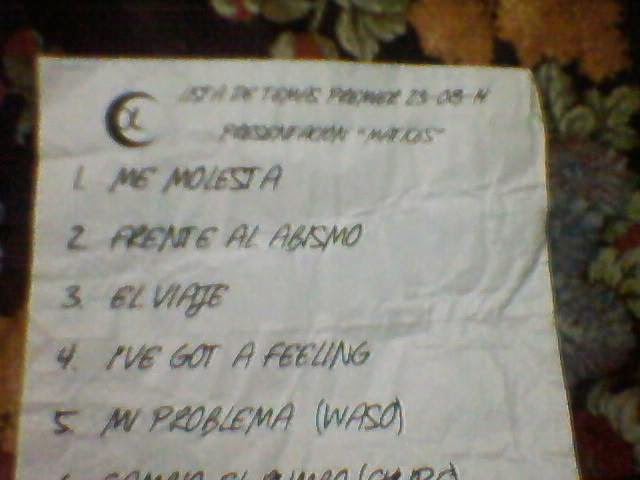 LISTA DE TEMAS PREMIER 23-08-14
PRESENTACION "MATRIS"
1. ME MOLESTA
2. FRENTE AL ABISMO
3. EL VIAJE
4. I'VE GOT A FEELING
5. MI PROBLEMA (WASO)